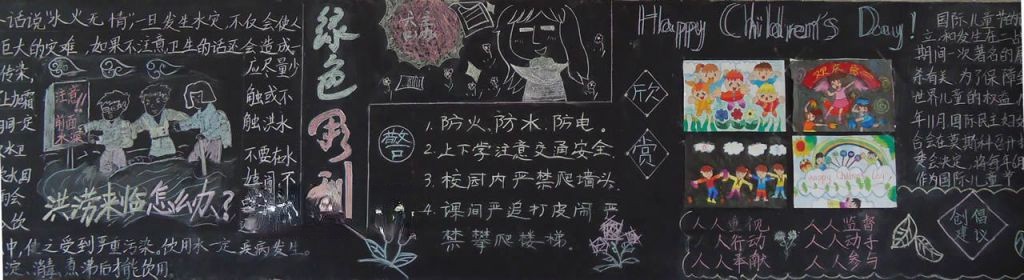 话说"水火无情",一旦发生水灾,不仅会使人
巨大的灾难,如果不注意卫生的话还会造成一
传染,
应尽量少
触或不
触洪水
不要在水
注意
前面
水深
洪涝来临怎么办?
中,使之受到严重污染。饮用水一定
疾病发生。
淀、消毒、煮沸后才能饮用。
绿色
警
1. 防火、防水、防电。
2. 上下学注意交通安全.
3. 校园内严禁爬墙头.
4. 课间严追打皮闹严
禁攀爬楼梯.
Happy Children's Day!
欣
赏
欢庆六一
人人重视
人人行动
人人奉献
人人监督
人人动手
人人参与
国际儿童节的
立和发生在二战
期间一次著名的屠
杀有关。为了保障全
世界儿童的权益
年11月国际民主妇女
作为国际儿童节
创倡
建议